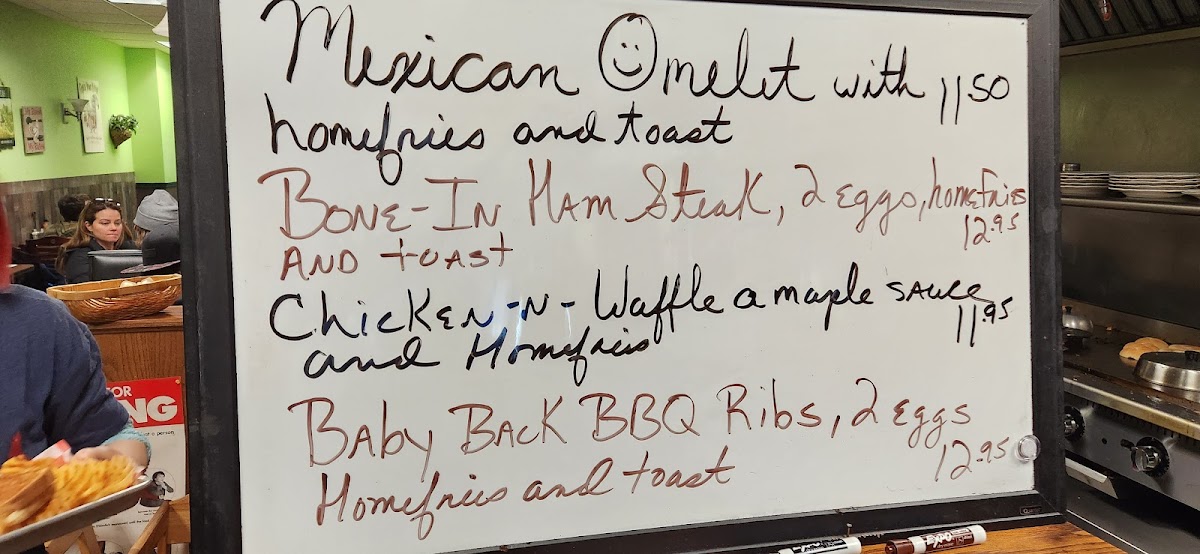 Mexican Omelet with 11.50
homefries and toast
Bone-In Ham Steak, 2 eggs, homefries
12.95
and toast
Chicken-N-Waffle a maple sauce
11.95
and Homefries
Baby Back BBQ Ribs, 2 eggs
12.95
Homefries and toast
OR
NG
EXPO